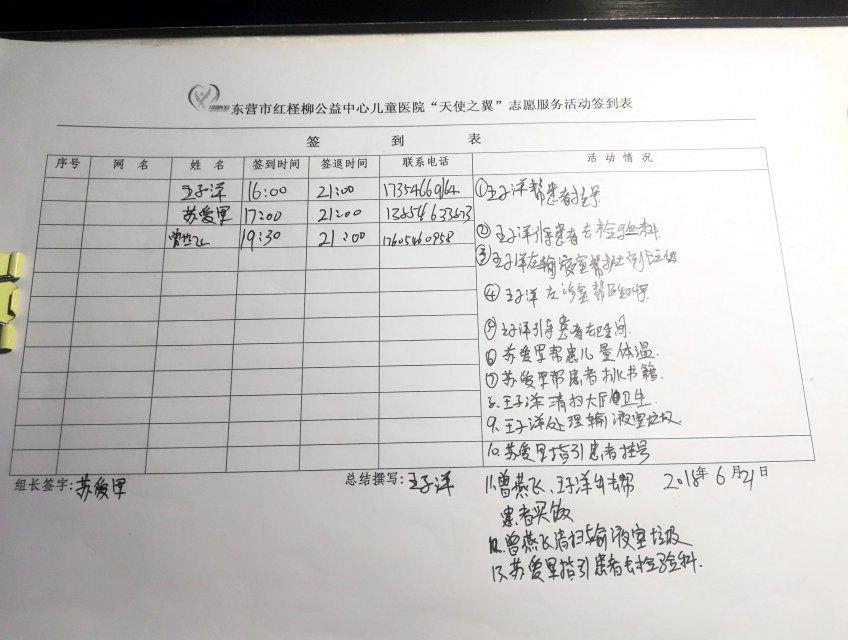 东营市红柽柳公益中心儿童医院“天使之翼”志愿服务活动签到表
签 到 表
序号 网 名 姓 名 签到时间 签退时间 联系电话 活 动 情 况
王子洋 16:00 21:00
苏爱军 17:00 21:00
曾燕飞 19:30 21:00 17605460958
①王子洋帮患者挂号
②王子洋引导患者去检验科.
③王子洋在输液室帮
④王子洋在诊室帮医生叫号
⑤王子洋引导患者去卫生间.
⑥苏爱军帮患儿量体温.
⑦苏爱军帮患者 书籍.
8.王子洋清扫大厅卫生.
9.王子洋处理输液室垃圾.
10.苏爱军指引患者挂号
组长签字:苏爱军 总结撰写:王子洋 2018年6月21日
11.曾燕飞、王子洋出去帮
患者买饭
12.曾燕飞清扫输液室垃圾
13.苏爱军指引患者去检验科.